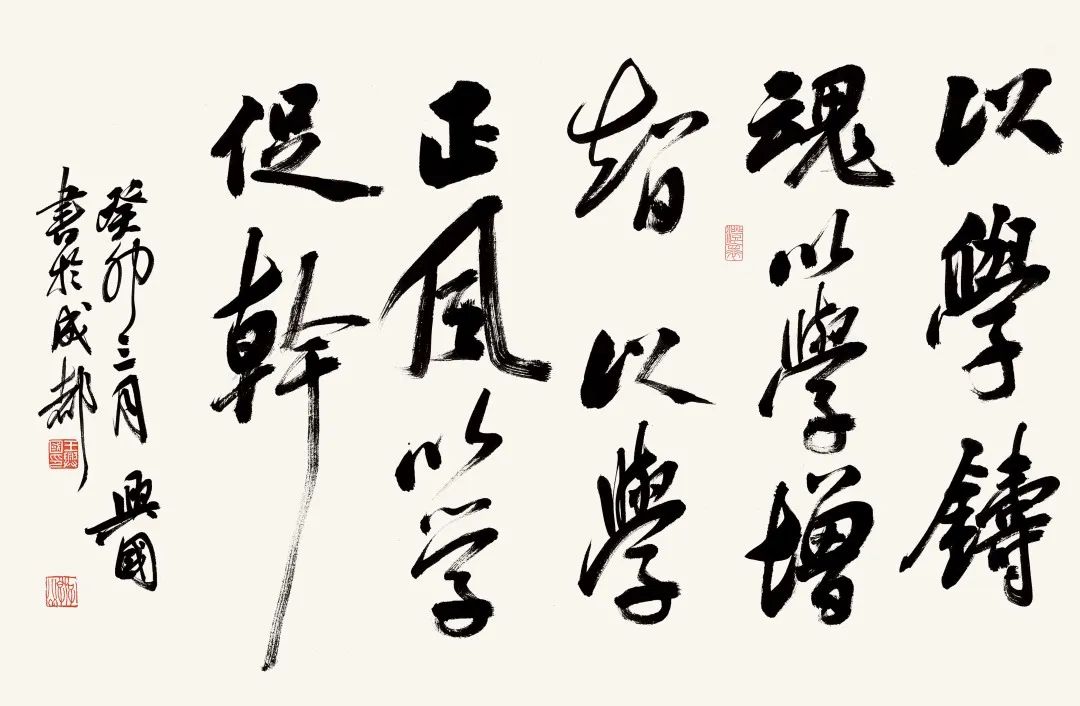 以學鑄
魂以學增
智以學
正風以学
促幹
癸卯三月興國
書於成都
王興國印